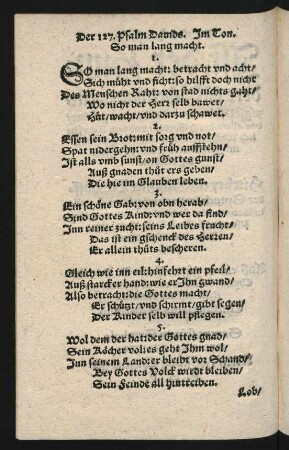 Der 127. Psalm Dauids. Im Ton.
So man lang macht.
1.
SO man lang macht: betracht vnd acht/
Sich müht vnd ficht: so hilfft doch nicht
Des Menschen Raht: von stad nichts gaht/
Wo nicht der Herr selb bawet/
Hüt/wacht/vnd darzu schawet.
2.
Essen sein Brot: mit sorg vnd not/
Spat nidergehn: vnd früh auffstehn/
Ist alls vmb sunst/on Gottes gunst/
Auß gnaden thüt ers geben/
Die hie im Glauben leben.
3.
Ein schöne Gab: von obn herab/
Sind Gottes Kind: vnd wer da find/
Inn reiner zucht: seins Leibes frucht/
Das ist ein gschenck des Herren/
Er allein thüts bescheren.
4.
Gleich wie inn eil: hinfehrt ein pfeil/
Auß starcker hand: wie er Ihn gwand/
Also betracht: die Gottes macht/
Er schützt/vnd schirmt/gibt segen/
Der Kinder selb will pflegen.
5.
Wol dem der hat: der Gottes gnad/
Sein Köcher vol: es geht Ihm wol/
Inn seinem Land: er bleibt vor Schand/
Bey Gottes Volck wirdt bleiben/
Sein Feinde all hintreiben.
Lob/